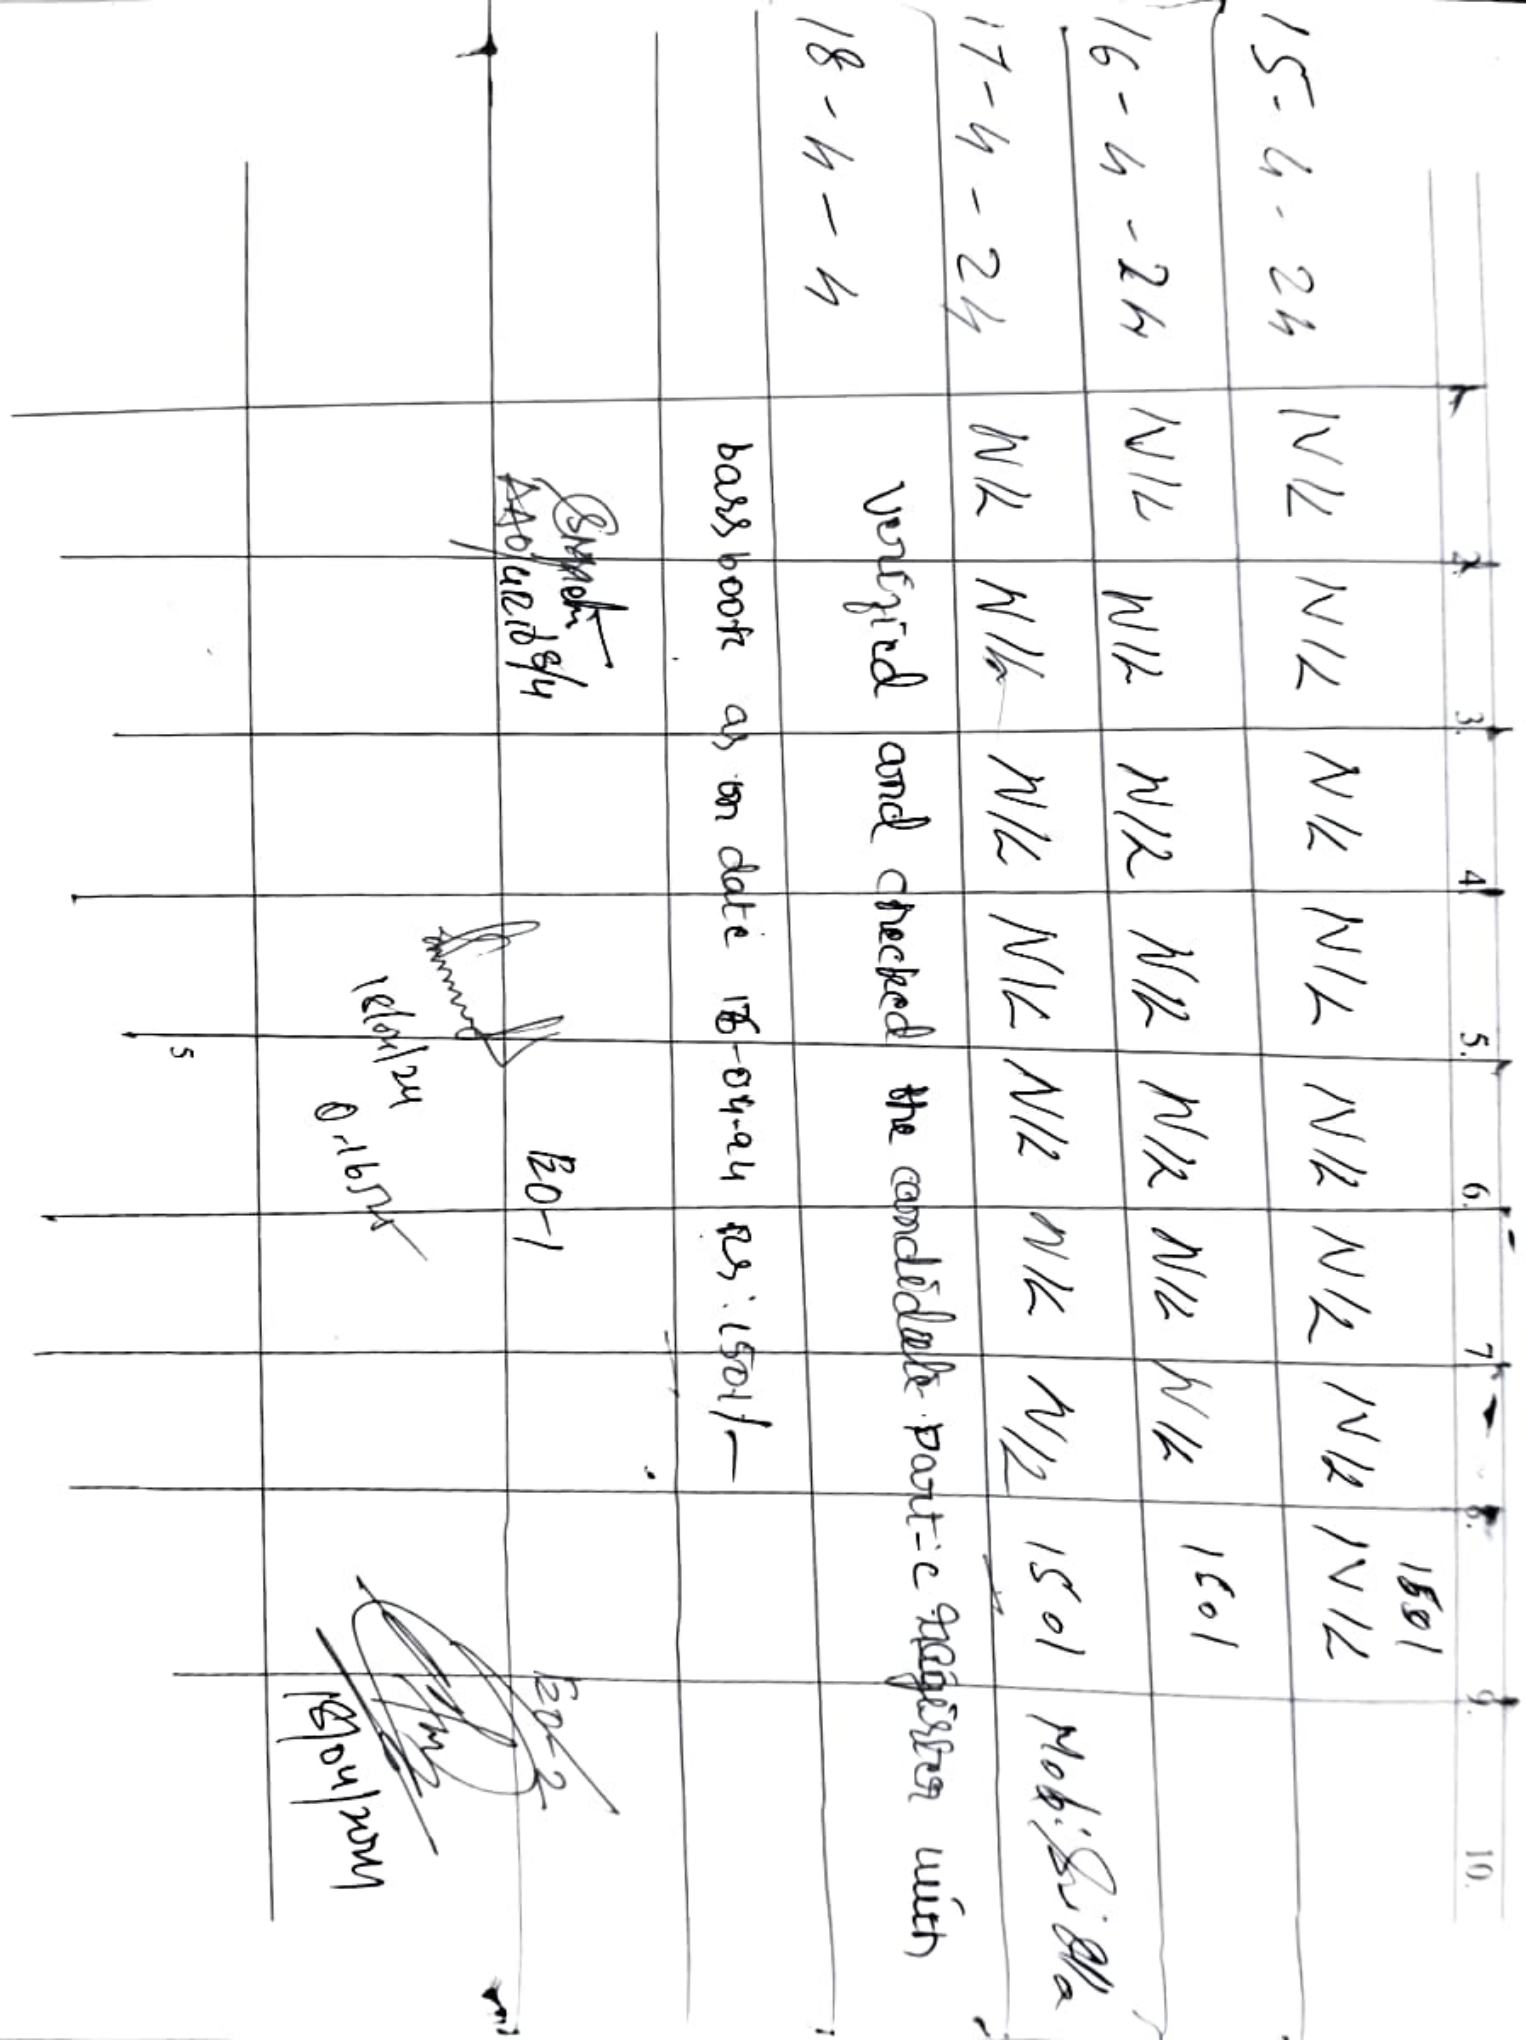 1. 2. 3. 4 5. 6. 7 8. 9. 10.
1501
15-4-24 NIL NIL NIL NIL NIL NIL NIL NIL
16-4-24 NIL NIL NIL NIL NIL NIL NIL 1501
17-4-24 NIL NIL NIL NIL NIL NIL NIL 1501
18-4-4 verified and checked the candidate part-c register with
bassbook as on date 18-04-24 Rs: 1501/-
EO-1
EO-2
18/04/24
18/04/2024
5